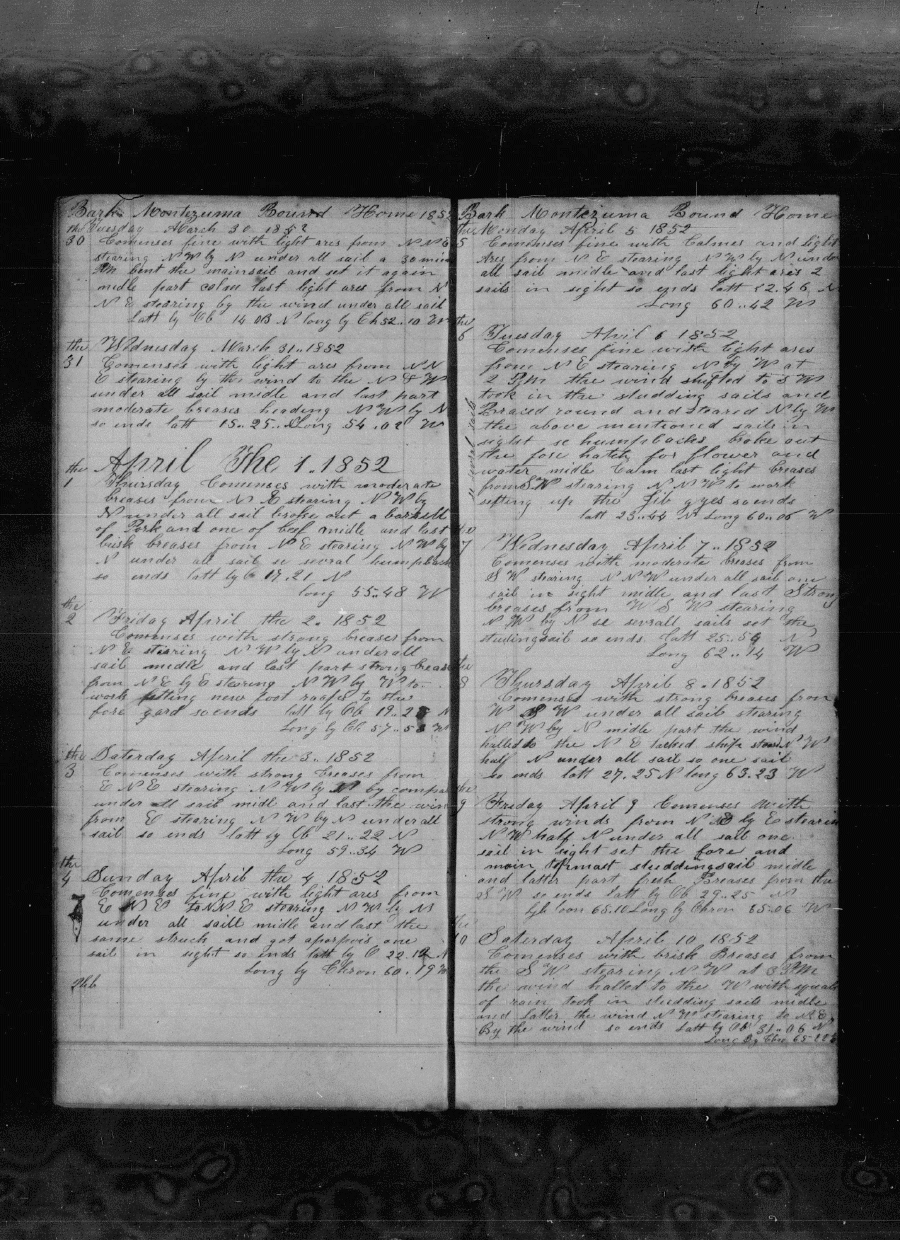 Bark Montezuma Bound Home 1852
the Tuesday March 30 1852
30 Comenses fine with light ares from N N E
stearing N W by N under all sail a 30 min
P.M bent the mainsail and set it again
midle part calm last light ares from N
N E stearing by the wind under all sail
Latt by Ob 14 03 N long by Ch 52..10 W
the Wednesday March 31..1852
31 Comenses with light ares from N N
E stearing by the wind to the N & W
under all sail midle and last part
moderate breases heading N W by N
so ends latt 15..25..Long 54..02 W
the April The 1..1852
1 Thursday Comenses with moderate
breases from N E stearing N W by
N under all sail broke out a barrell
of Pork and one of beef midle and last
brisk breases from N E stearing N W by
N under all sail se sevral humpback
so ends latt by O 17..21 N
long 55..48 W
the
2 Friday April the 2..1852
Comenses with strong breases from
N E stearing N W by N under all
sail midle and last part strong breases
from N E by E stearing N W by W to
work fitting new foot roaps to the
fore yard so ends latt by Ob 19..25 N
Long by Ch 57..53 W
the Saterday April the 3..1852
3 Comenses with strong breases from
E N E stearing N W by N by compas
under all sail midl and last the wind
from E stearing N W by N under all
sail so ends latt by Ob 21..22 N
Long 59..34 W
the
4 Sunday April the 4 1852
Comenses fine with light ares from
E N E to N N E stearing N W by N
under all saill midle and last the
same struck and got aporpois one
sail in sight so ends latt by O 22..12 N
Long by Chron 60..19 W
Bark Montezuma Bound Home
the Monday April 5 1852
5 Comenses fine with Calmes and light
Ares from N E stearing N W by N under
all sail midle and last light ares 2
sails in sight so ends latt 22..46 N
Long 60..42 W
the
6 Tuesday April 6 1852
Comenses fine with light ares
from N E stearing N by W at
2 P.M the wind shifted to S W
took in the studding sails and
Braced round and steared N by W
the above mentioned sails in
sight se humpbacks broke out
the fore hatch for flower and
water midle Calm last light breases
from S W stearing N N W to work
sifting up the Jib gyes so ends
latt 23..44 N Long 60..06 W
se sevral sails
the
7 Wednesday April 7..1852
Comenses with moderate breases from
S W stearing N N W under all sail one
sail in sight midle and last Strong
breases from W S W stearing
N W by N se sevrall sails set the
studingsail so ends latt 25..59 N
Long 62..14 W
the
8 Thursday April 8..1852
Comenses with strong breases from
W S W under all sail stearing
N W by N midle part the wind
halled to the N E tacked ship stear N W
half N under all sail so one sail
so ends latt 27..25 N long 63..23 W
the
9 Friday April 9 Comenses with
strong winds from N E by E stearing
N W half N under all sail one
sail in sight set the fore and
main topmast studdingsail midle
and latter part fresh Breases from the
S W so ends latt by Ob 29..25 N
by loon 65..10 Long by Chron 65..06 W
the
10 Saterday April 10 1852
Comenses with brisk Breases from
the S W stearing N W at 8 P.M
the wind halled to the W with squals
of rain took in studding sails midle
and latter the wind N W stearing to N E
By the wind so ends Latt by Ob 31..06 N
Long by Chro 65..22